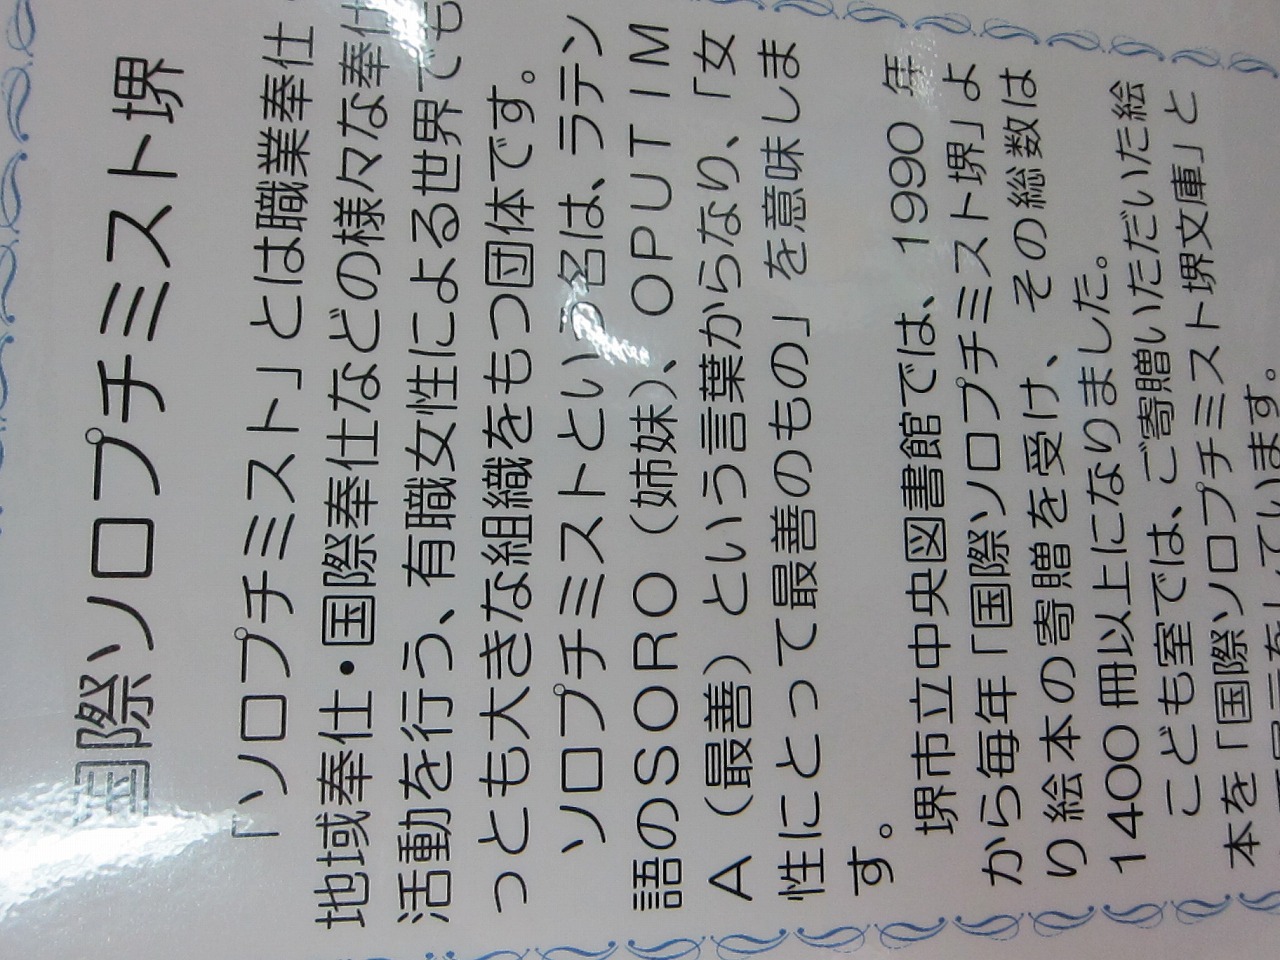 国際ソロプチミスト堺
「ソロプチミスト」とは職業奉仕・
地域奉仕・国際奉仕などの様々な奉仕
活動を行う、有職女性による世界でも
っとも大きな組織をもつ団体です。
ソロプチミストという名は、ラテン
語のSORO（姉妹）、OPUTIM
A（最善）という言葉からなり、「女
性にとって最善のもの」を意味しま
す。
堺市立中央図書館では、1990年
から毎年「国際ソロプチミスト堺」よ
り絵本の寄贈を受け、その総数は
1400冊以上になりました。
こども室では、ご寄贈いただいた絵
本を「国際ソロプチミスト堺文庫」と
して展示をしています。